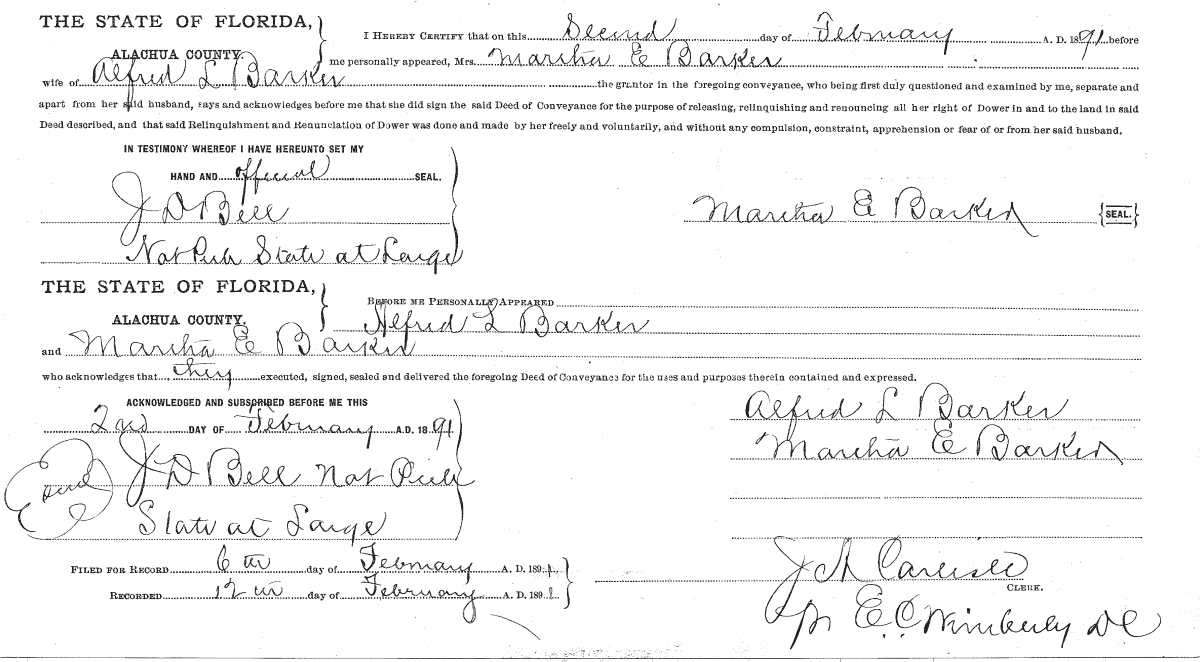 THE STATE OF FLORIDA,
ALACHUA COUNTY.
I HEREBY CERTIFY that on this Second day of February A. D. 1891 before
me personally appeared, Mrs. Martha E Barker
wife of Alfred L Barker the grantor in the foregoing conveyance, who being first duly questioned and examined by me, separate and
apart from her said husband, says and acknowledges before me that she did sign the said Deed of Conveyance for the purpose of releasing, relinquishing and renouncing all her right of Dower in and to the land in said
Deed described, and that said Relinquishment and Renunciation of Dower was done and made by her freely and voluntarily, and without any compulsion, constraint, apprehension or fear of or from her said husband.
IN TESTIMONY WHEREOF I HAVE HEREUNTO SET MY
HAND AND official SEAL.
J D Bell
Martha E Barker {SEAL.}
Not Pub State at Large
THE STATE OF FLORIDA,
ALACHUA COUNTY.
BEFORE ME PERSONALLY APPEARED
Alfred L Barker
and Martha E Barker
who acknowledges that they executed, signed, sealed and delivered the foregoing Deed of Conveyance for the uses and purposes therein contained and expressed.
ACKNOWLEDGED AND SUBSCRIBED BEFORE ME THIS
2nd DAY OF February A.D. 1891
Alfred L Barker
Martha E Barker
J D Bell Not Pub
State at Large
FILED FOR RECORD 6th day of February A. D. 1891
RECORDED 12th day of February A. D. 1891
J A Carlisle
CLERK.
E. C. Wimberly DC